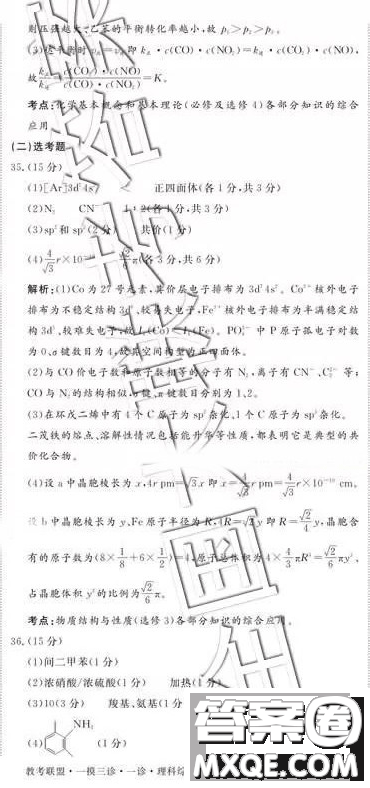 则压强越大,乙苯的平衡转化率越小,故 p₁>p₂>p₃。
(3)达平衡时 v正=v逆 即 k正·c(CO)·c(NO₂)=k逆·c(CO₂)·c(NO),
故 k正/k逆 = c(CO₂)·c(NO)/c(CO)·c(NO₂) =K。
考点:化学基本概念和基本理论(必修及选修4)各部分知识的综合
应用
(二)选考题
35.(15分)
(1)[Ar]3d⁷4s² < 正四面体(各1分,共3分)
(2)N₂ CN⁻ 1:2(各1分,共3分)
(3)sp² 和 sp³(2分) 共价(1分)
(4) 4/√3 r×10⁻¹⁰ √2/6 π(各3分,共6分)
解析:(1)Co为27号元素,其价层电子排布为3d⁷4s²。Co²⁺核外电子
排布为不稳定结构3d⁷,较易失电子,Fe³⁺核外电子排布为半满稳定结
构3d⁵,较难失电子,故I₃(Co)<I₃(Fe)。PO₄³⁻中P原子孤电子对数
为0,σ键数目为4,故其空间构型为正四面体。
(2)与CO价电子数和原子数相等的分子有N₂,离子有CN⁻、C₂²⁻等;
CO与N₂的结构相似,σ键、π键数目分别为1、2。
(3)在环戊二烯中有4个C原子为sp²杂化、1个C原子为sp³杂化。
二茂铁的熔点、溶解性情况包括能升华等性质,都表明它是典型的共
价化合物。
(4)设a中晶胞棱长为x,4r pm=√3x 即 x=4/√3 r pm=4/√3 r×10⁻¹⁰ cm。
设b中晶胞棱长为y、Fe原子半径为R,4R=√2y 即 R=√2/4 y,晶胞含
有的原子数为(8×1/8+6×1/2)=4,原子总体积为4×4/3 πR³=√2/6 πy³,
占晶胞体积y³的比例为√2/6 π。
考点:物质结构与性质(选修3)各部分知识的综合应用。
36.(15分)
(1)间二甲苯(1分)
(2)浓硝酸/浓硫酸(1分) 加热(1分)
(3)10(3分) 羧基、氨基(1分
(4) NH₂ (1分)
教考联盟·一摸三诊·一诊·理科综
答案圈
MXQE.COM